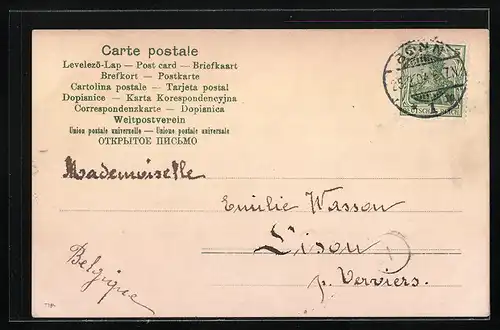 Carte postale
Levelező-Lap — Post card — Briefkaart
Brefkort — Postkarte
Cartolina postale — Tarjeta postal
Dopisnice — Karta Korespondencyjna
Correspondenzkarte — Dopisnica
Weltpostverein
Union postale universelle — Unione postale universale
ОТКРЫТОЕ ПИСЬМО
BONN
Mademoiselle
Emilie Wasson
Lison
p. Verviers.
Belgique